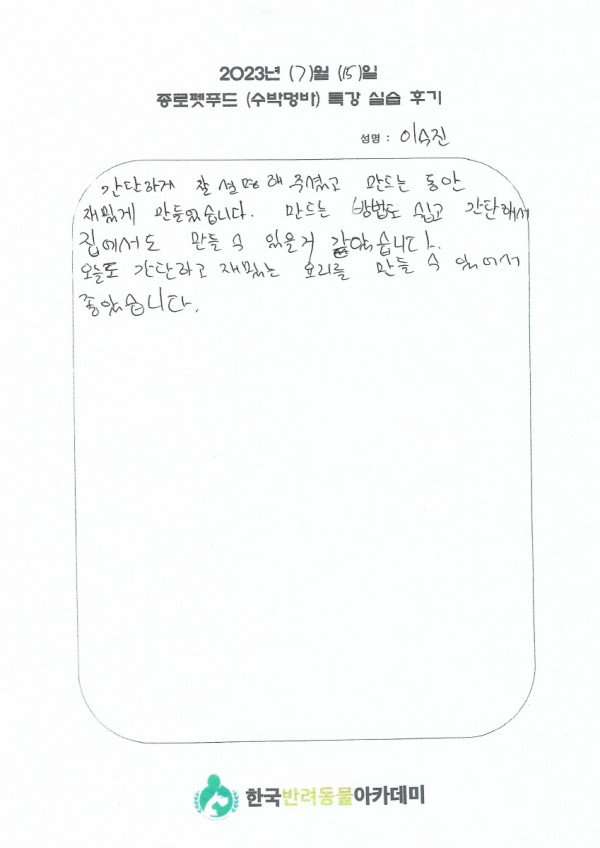 2023년 (7)월 (15)일
종로펫푸드 (수박멍바) 특강 실습 후기
성명 : 이수진
간단하게 잘 설명해주셨고 만드는 동안
재밌게 만들었습니다. 만드는 방법도 쉽고 간단해서
집에서도 만들 수 있을거 같았습니다.
오늘도 간단하고 재밌는 요리를 만들 수 있어서
좋았습니다.
한국반려동물아카데미